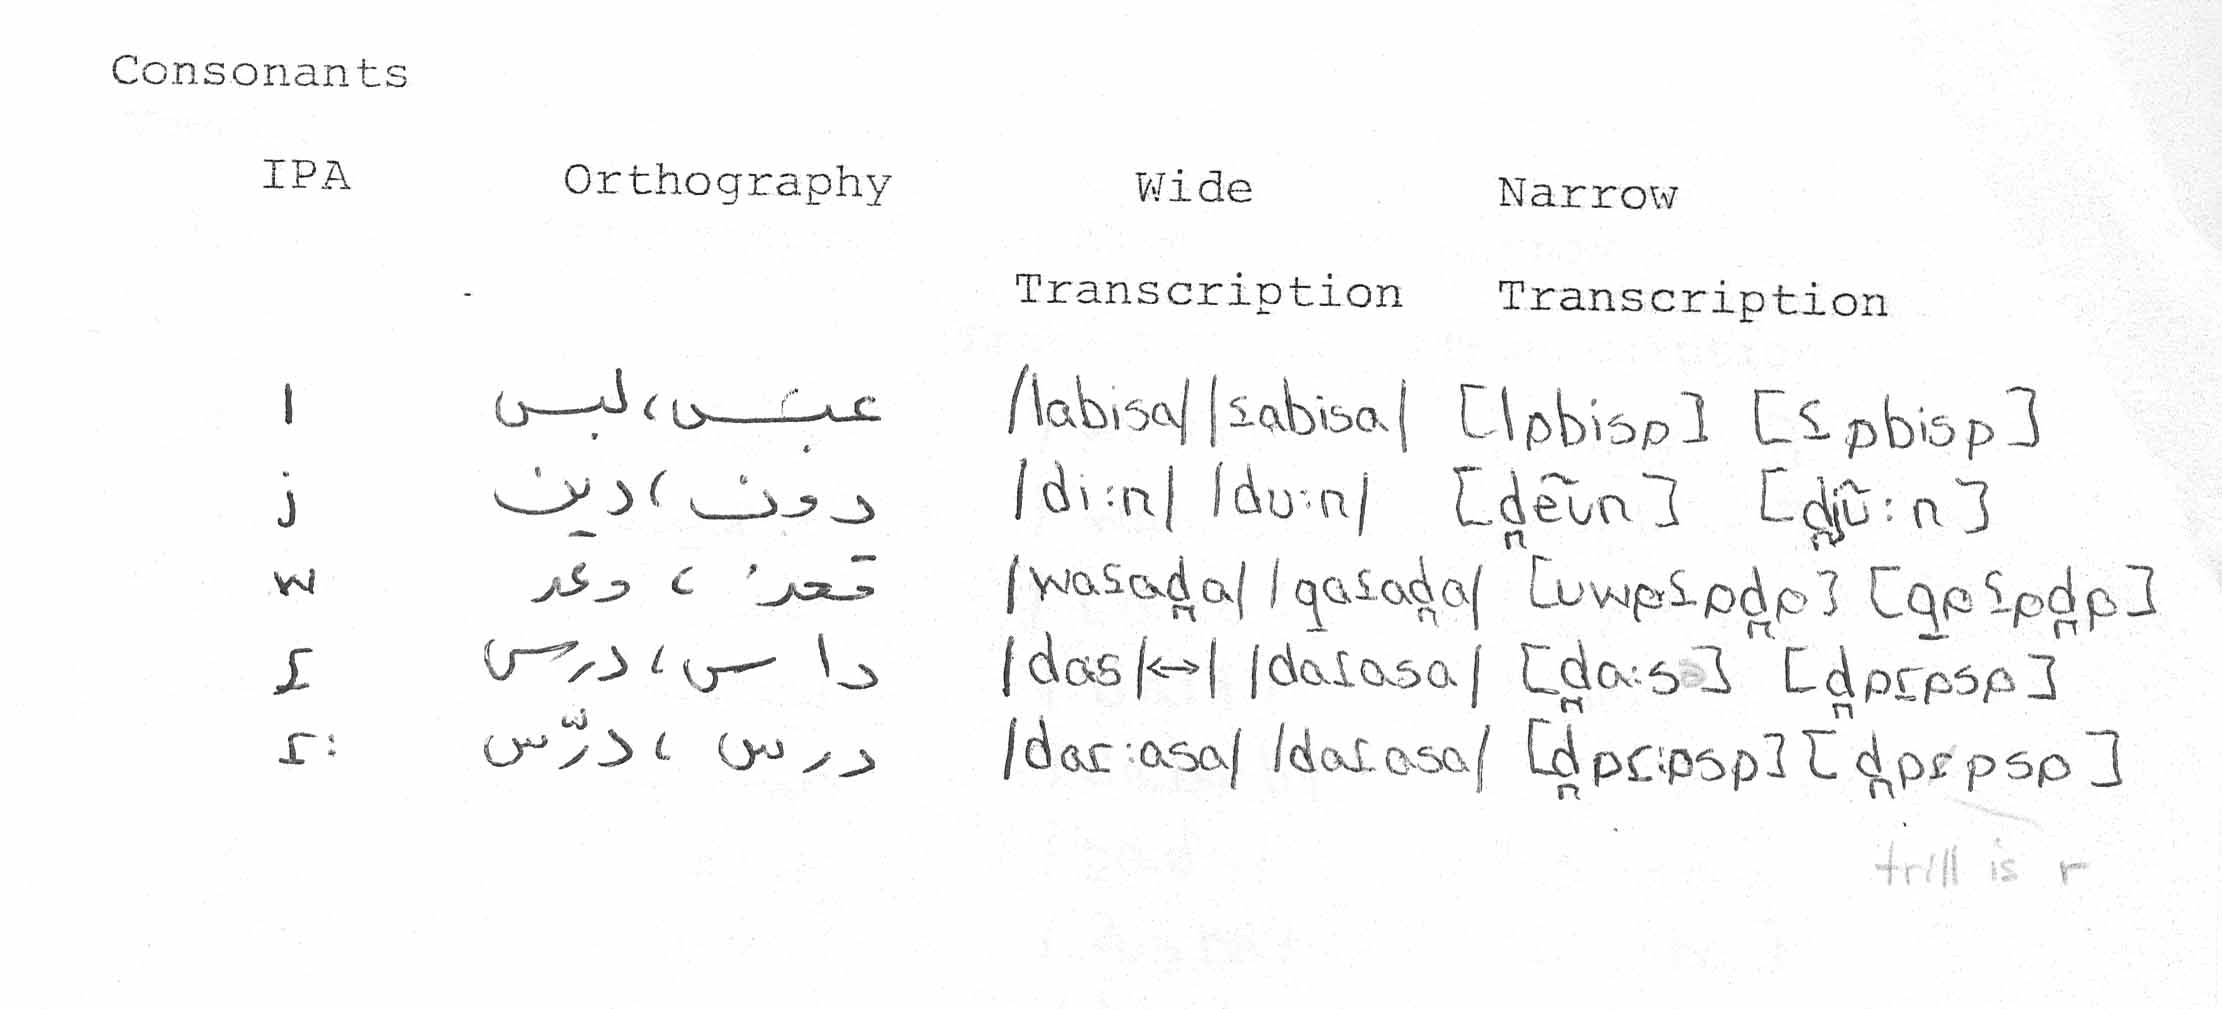 Consonants
IPA Orthography Wide Narrow
Transcription Transcription
l عبس، لبس /labisa/ /ʕabisa/ [lɒbisɒ] [ʕɒbisɒ]
j دون، دين /di:n/ /dʊ:n/ [d̪ẽʊ̃n] [d̪jʊ̃:n]
w قعد، وعد /waʕad̪a/ /q̱aʕad̪a/ [ʊwɒʕɒd̪ɒ] [q̱ɒʕɒd̪ɒ]
ɾ داس، درس /das/↔/ /daɾasa/ [d̪a:s] [d̪ɒɾɒsɒ]
ɾ: درس، درّس /daɾ:asa/ /daɾasa/ [d̪ɒɾ:ɒsɒ] [d̪ɒɾɒsɒ]
trill is r